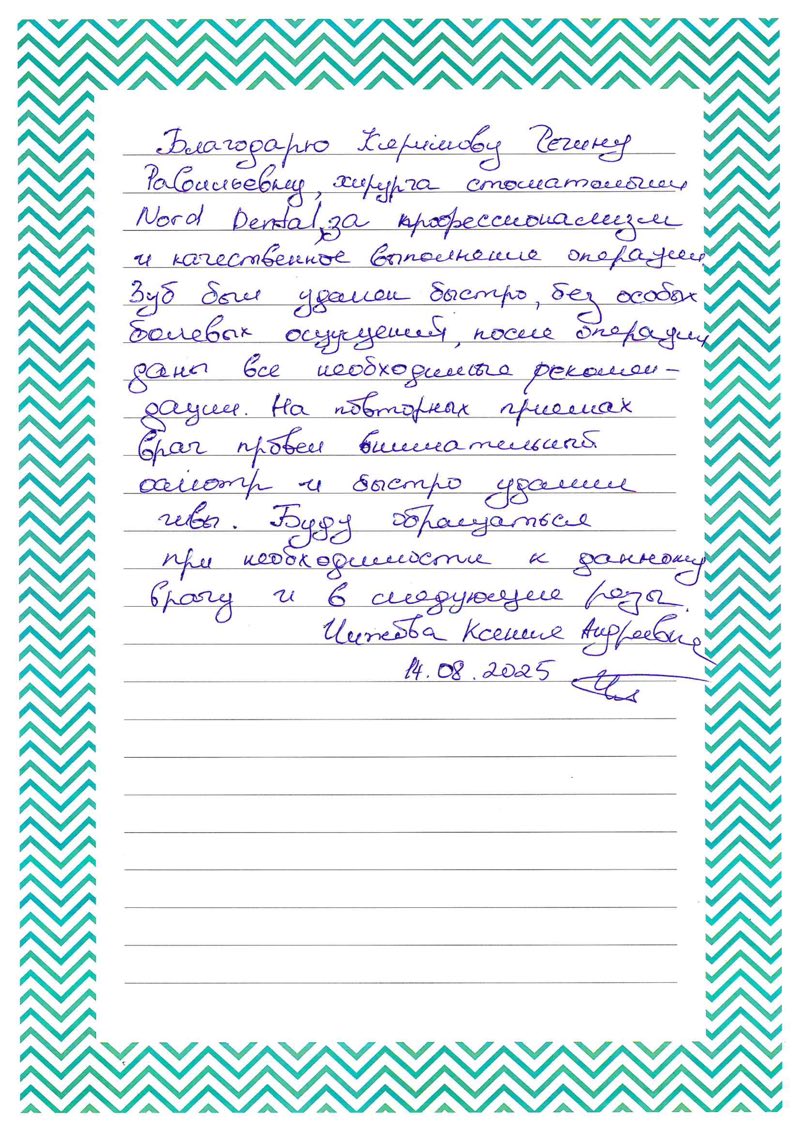 Благодарю Керимову Регину
Равильевну, хирурга стоматологии
Nord Dental, за профессионализм
и качественное выполнение операции.
Зуб был удален быстро, без особых
болевых ощущений, после операции
даны все необходимые рекомен-
дации. На повторных приемах
врач провел внимательный
осмотр и быстро удалил
швы. Буду обращаться
при необходимости к данному
врачу и в следующие разы.
Ксения Андреевна
14.08.2025